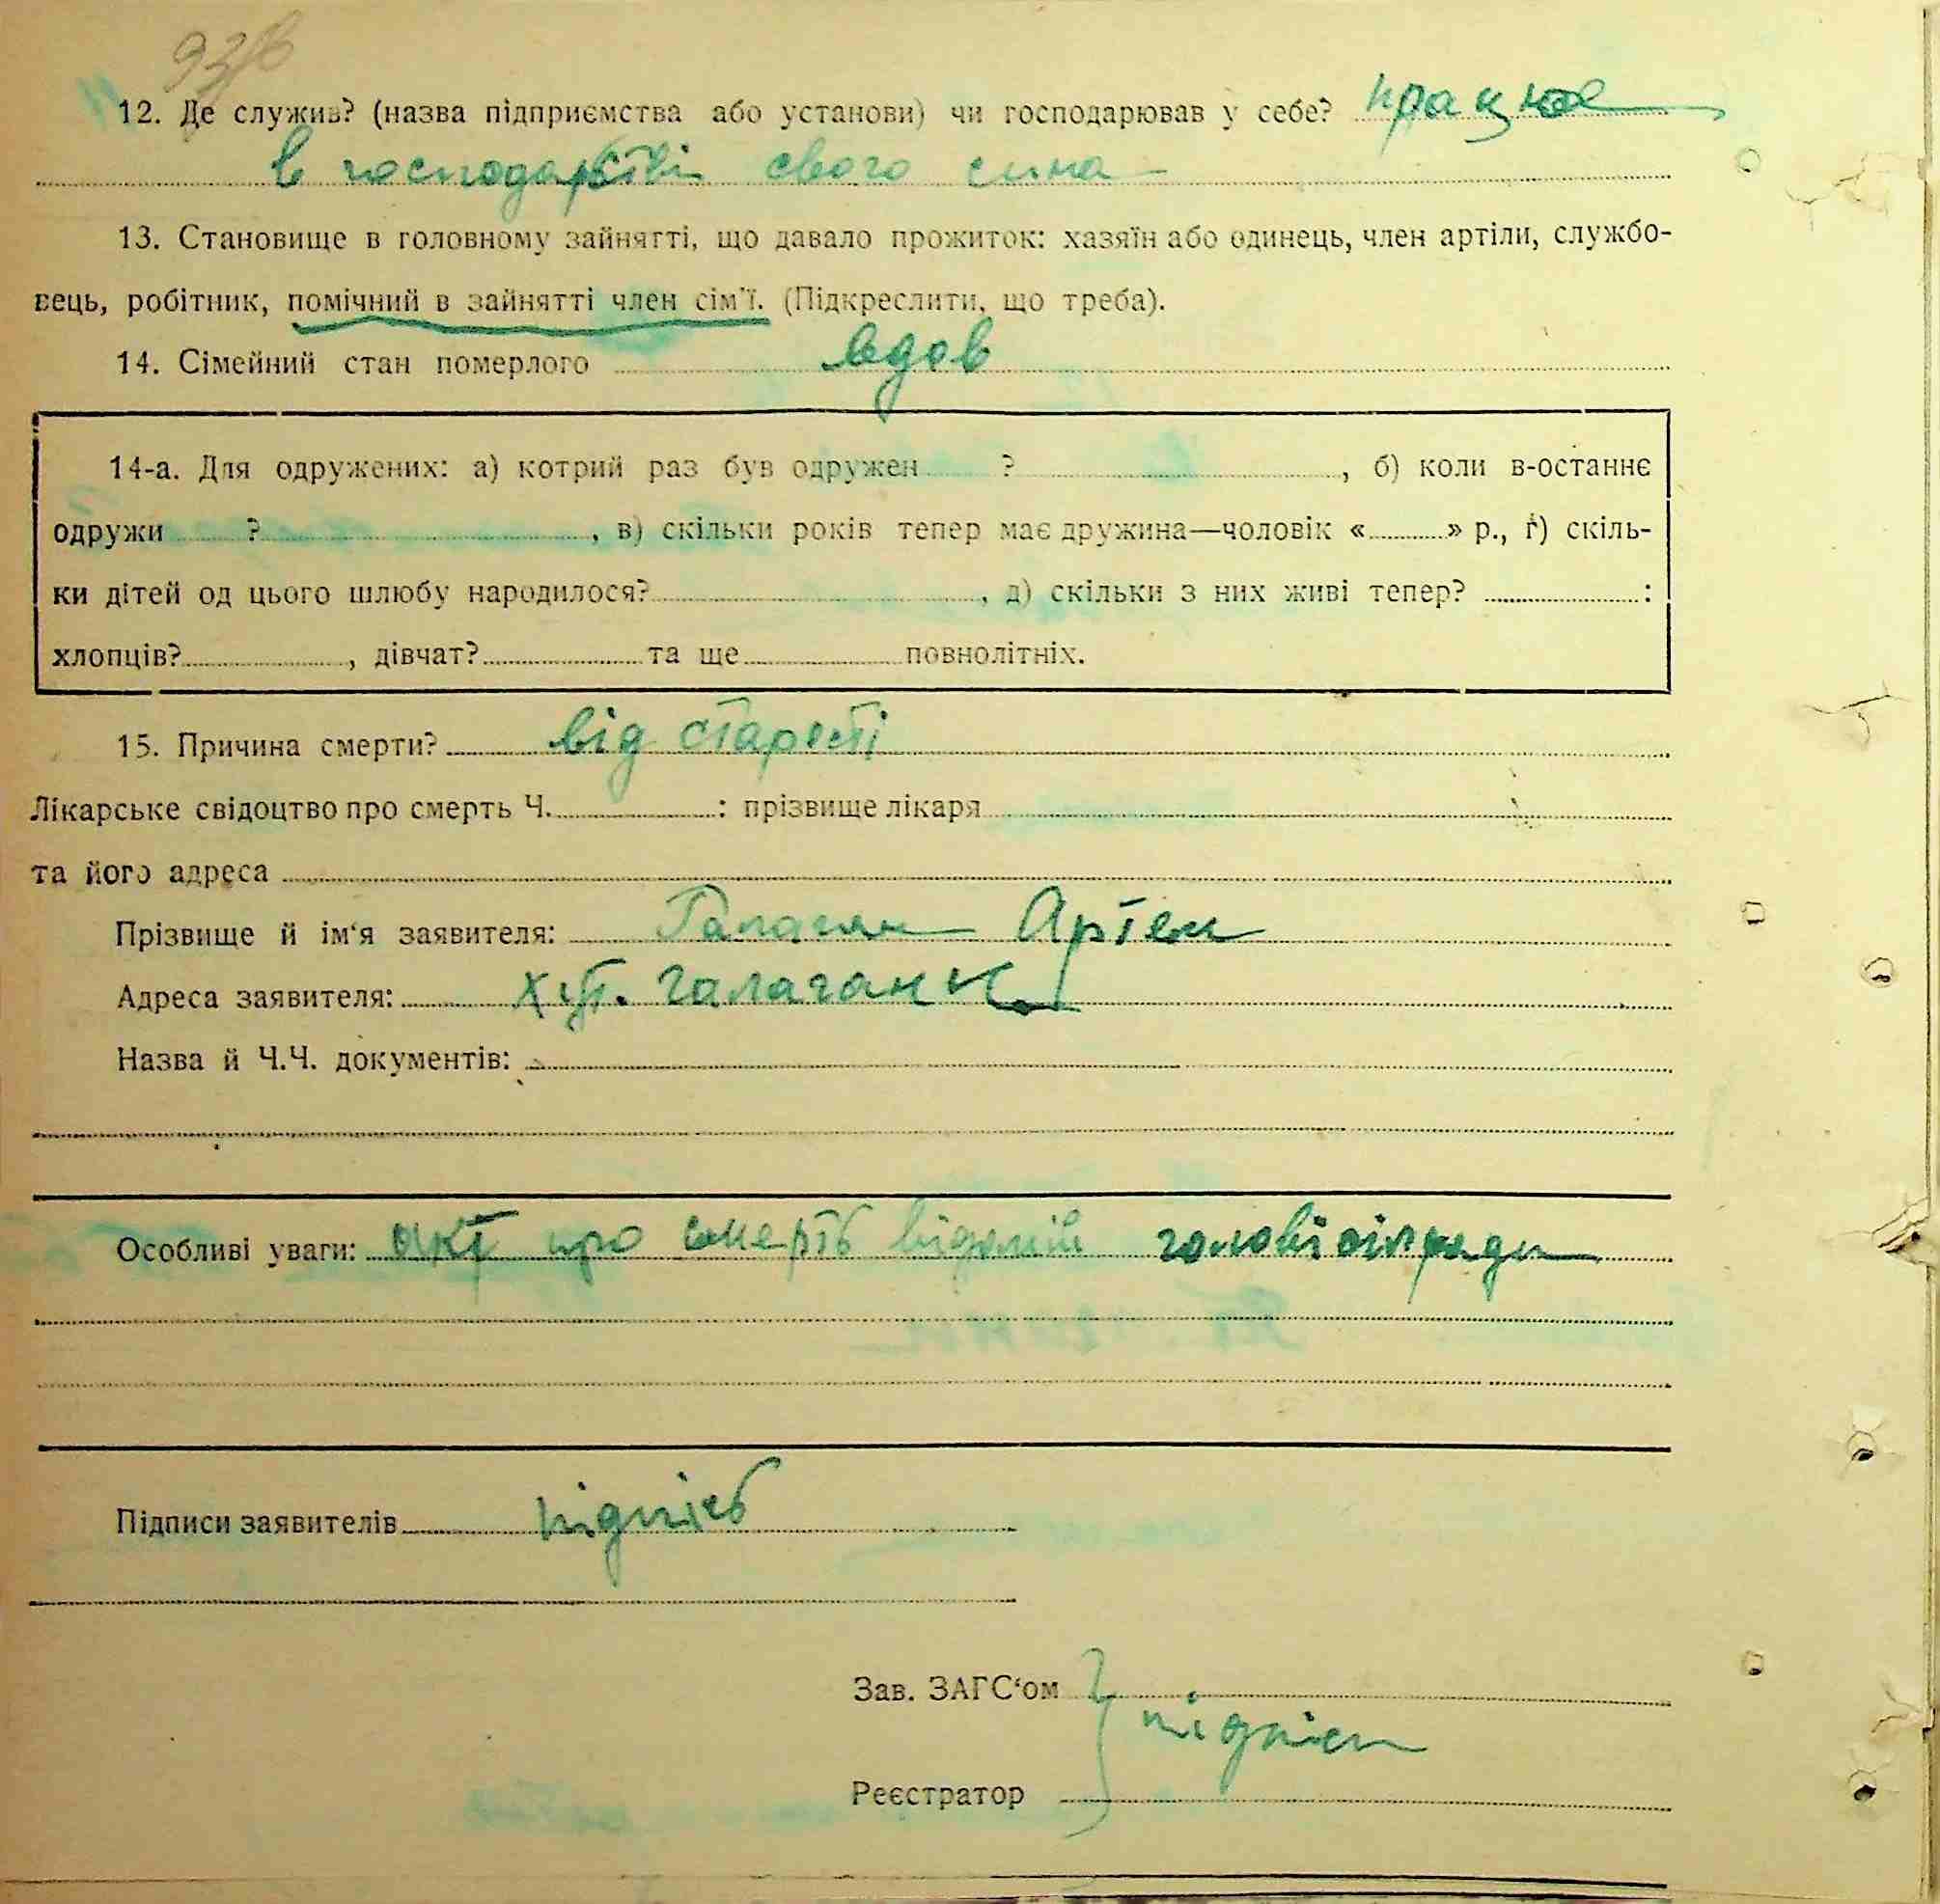 12. Де служив? (назва підприємства або установи) чи господарював у себе? працює
в господарстві свого сина
13. Становище в головному зайнятті, що давало прожиток: хазяїн або одинець, член артіли, службо-
вець, робітник, помічний в зайнятті член сім'ї. (Підкреслити, що треба).
14. Сімейний стан померлого вдов
14-а. Для одружених: а) котрий раз був одружен ? , б) коли в-останнє
одружи ? , в) скільки років тепер має дружина—чоловік « » р., ґ) скіль-
ки дітей од цього шлюбу народилося? , д) скільки з них живі тепер? :
хлопців? , дівчат? та ще повнолітніх.
15. Причина смерти? від старості
Лікарське свідоцтво про смерть Ч. : прізвище лікаря
та його адреса
Прізвище й ім'я заявителя: Галаган Артем
Адреса заявителя: хут. Галаганка
Назва й Ч.Ч. документів:
Особливі уваги: акт про смерть голові сільради
Підписи заявителів підпись
Зав. ЗАГС'ом
підписи
Реєстратор